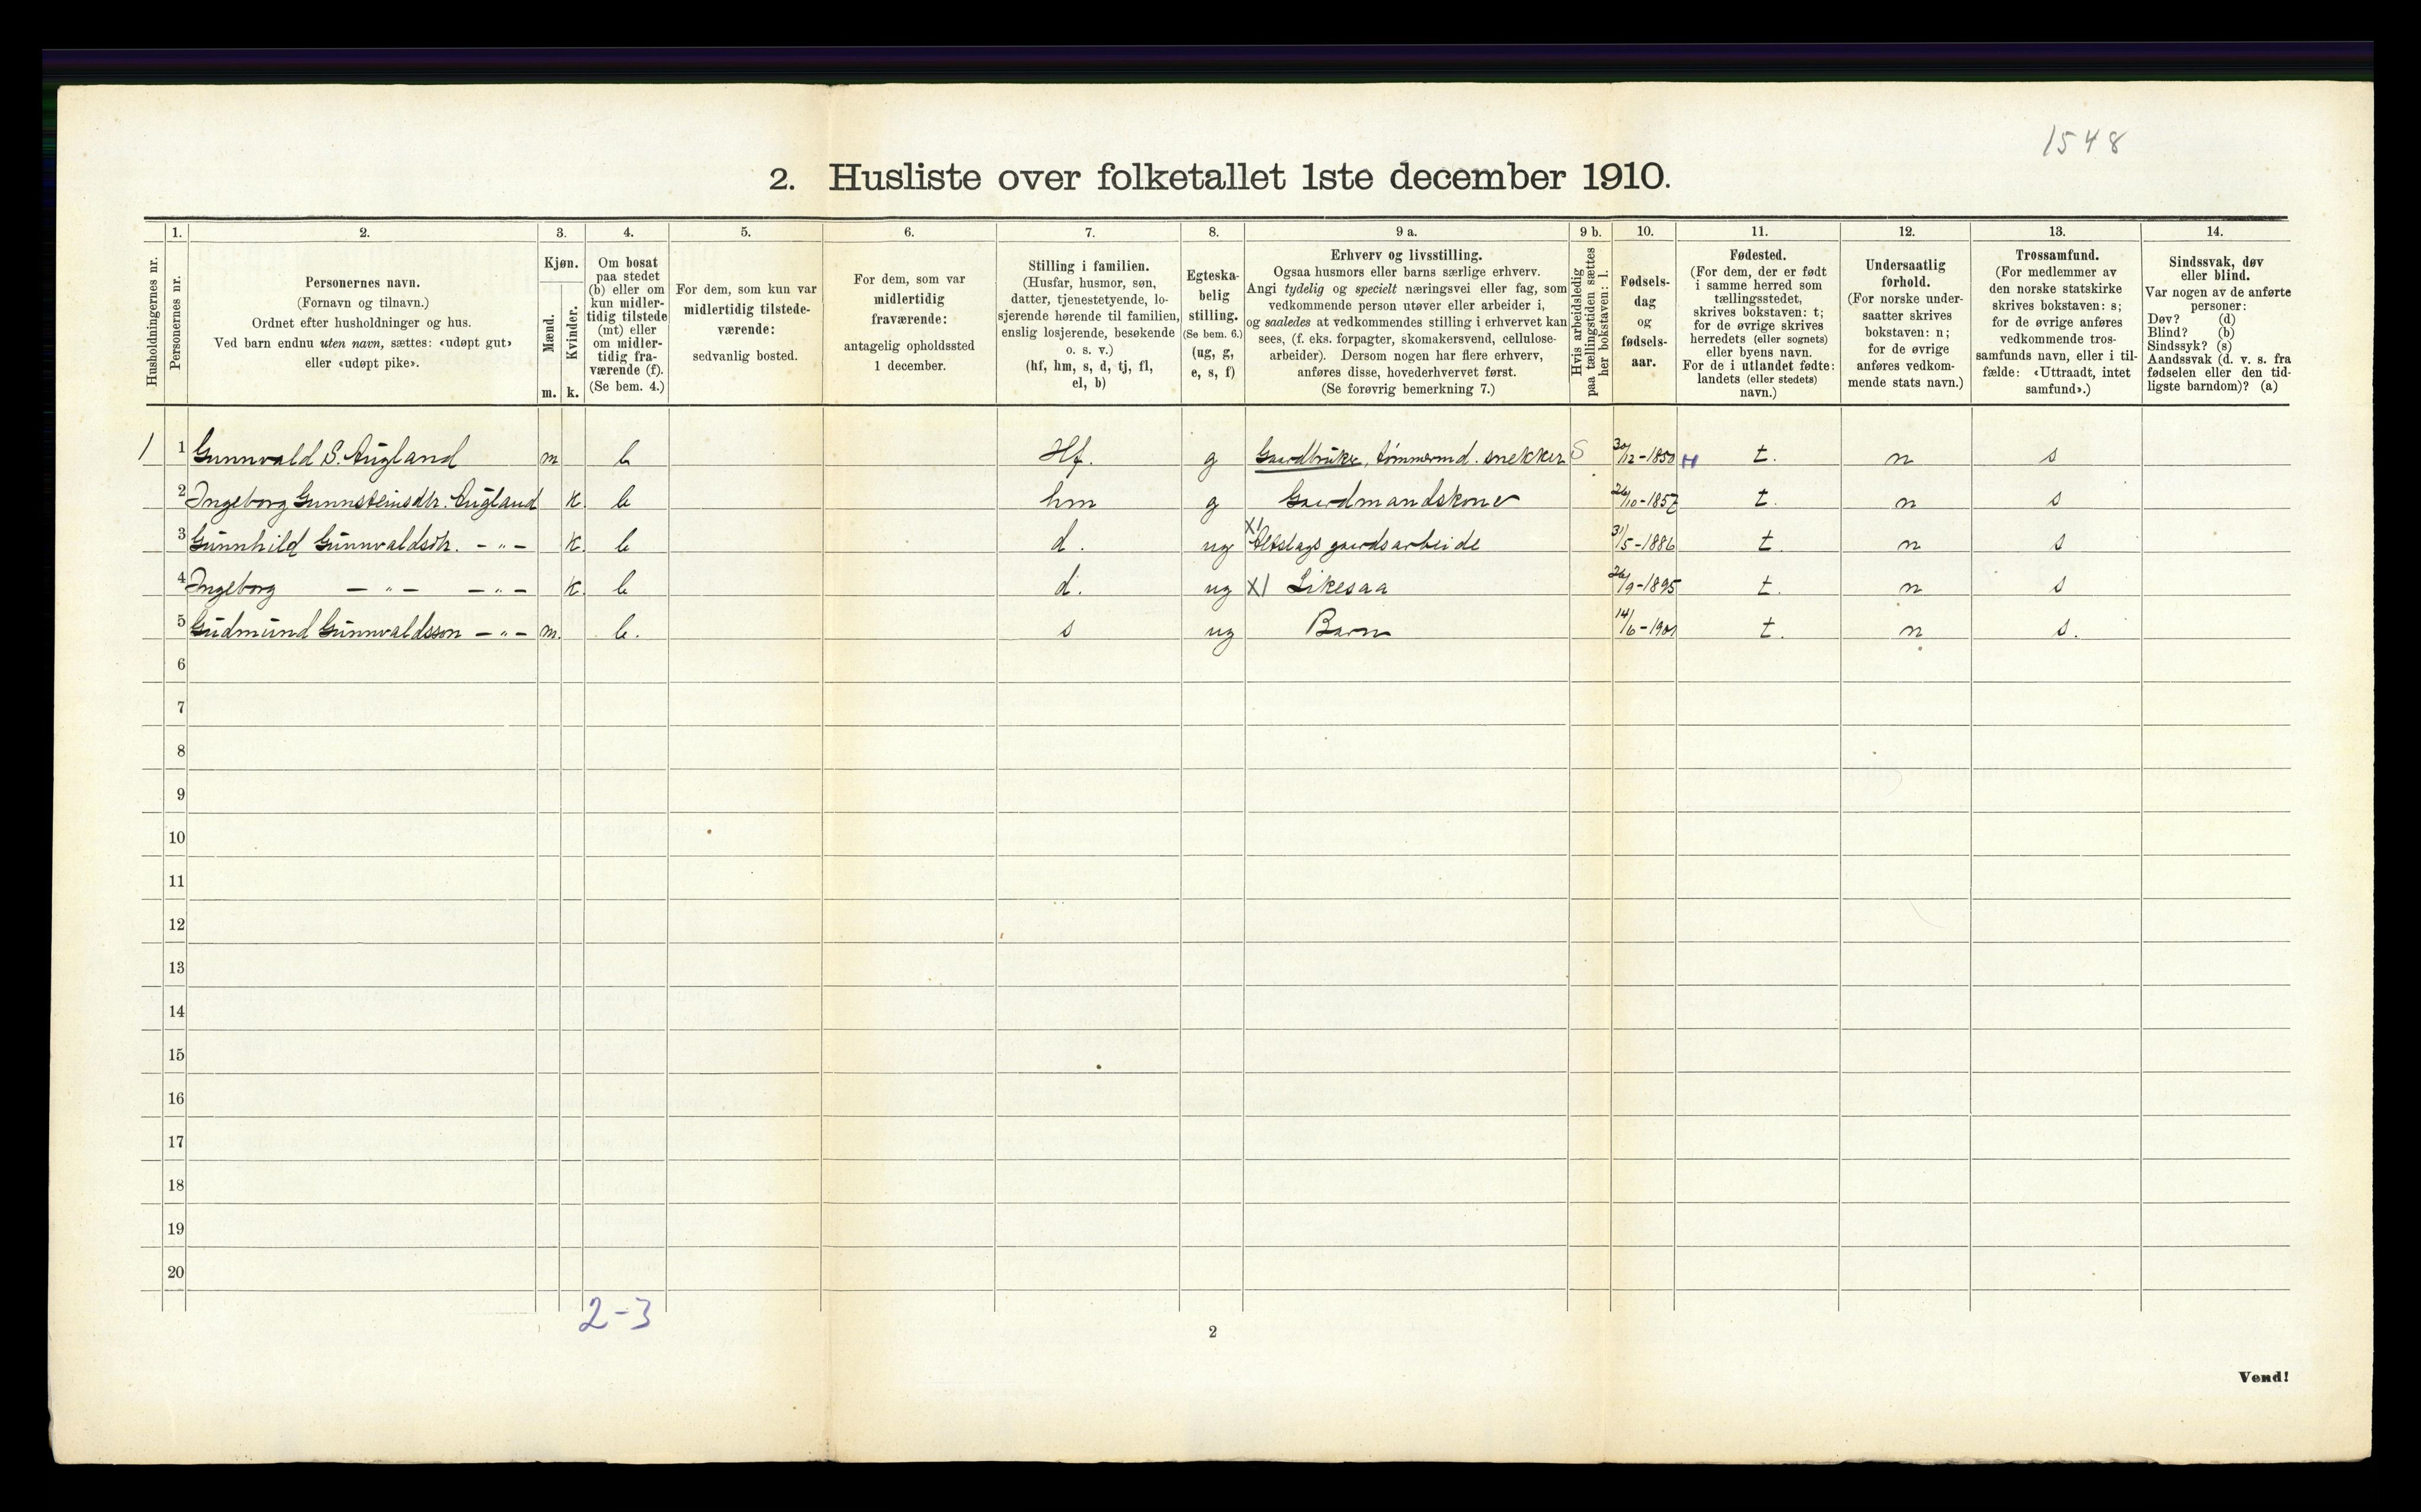 1548
2. Husliste over folketallet 1ste december 1910.
Husholdningernes nr.
1. Personernes nr.
2. Personernes navn.
(Fornavn og tilnavn.)
Ordnet efter husholdninger og hus.
Ved barn endnu uten navn, sættes: «udøpt gut»
eller «udøpt pike».
3. Kjøn.
Mænd. m.
Kvinder. k.
4. Om bosat
paa stedet
(b) eller om
kun midler-
tidig tilstede
(mt) eller
om midler-
tidig fra-
værende (f).
(Se bem. 4.)
5. For dem, som kun var
midlertidig tilstede-
værende:
sedvanlig bosted.
6. For dem, som var
midlertidig
fraværende:
antagelig opholdssted
1 december.
7. Stilling i familien.
(Husfar, husmor, søn,
datter, tjenestetyende, lo-
sjerende hørende til familien,
enslig losjerende, besøkende
o. s. v.)
(hf, hm, s, d, tj, fl,
el, b)
8. Egteska-
belig
stilling.
(Se bem. 6.)
(ug, g,
e, s, f)
9 a. Erhverv og livsstilling.
Ogsaa husmors eller barns særlige erhverv.
Angi tydelig og specielt næringsvei eller fag, som
vedkommende person utøver eller arbeider i,
og saaledes at vedkommendes stilling i erhvervet kan
sees, (f. eks. forpagter, skomakersvend, cellulose-
arbeider). Dersom nogen har flere erhverv,
anføres disse, hovederhvervet først.
(Se forøvrig bemerkning 7.)
9 b. Hvis arbeidsledig
paa tællingstiden sættes
her bokstaven: l.
10. Fødsels-
dag
og
fødsels-
aar.
11. Fødested.
(For dem, der er født
i samme herred som
tællingsstedet,
skrives bokstaven: t;
for de øvrige skrives
herredets (eller sognets)
eller byens navn.
For de i utlandet fødte:
landets (eller stedets)
navn.)
12. Undersaatlig
forhold.
(For norske under-
saatter skrives
bokstaven: n;
for de øvrige
anføres vedkom-
mende stats navn.)
13. Trossamfund.
(For medlemmer av
den norske statskirke
skrives bokstaven: s;
for de øvrige anføres
vedkommende tros-
samfunds navn, eller i til-
fælde: «Uttraadt, intet
samfund».)
14. Sindssvak, døv
eller blind.
Var nogen av de anførte
personer:
Døv? (d)
Blind? (b)
Sindssyk? (s)
Aandssvak (d. v. s. fra
fødselen eller den tid-
ligste barndom)? (a)
1 1 Gunnvald S. Augland m b Hf. g Gaardbruker, tømmermd. snekker S 30/12-1850 H t. n s
2 Ingeborg Gunnsteinsdtr. Augland k. b hm g Gaardmandskone 26/10-1857 t. n s
3 Gunnhild Gunnvaldsdtr. - " - k. b d. ug X1 Alslags gaardsarbeide 31/5-1886 t. n s
4 Ingeborg - " - - " - k. b d. ug X1 Likesaa 26/9-1895 t. n s
5 Gudmund Gunnvaldsson - " - m. b. s ug Barn 14/6-1901 t. n s.
6
7
8
9
10
11
12
13
14
15
16
17
18
19
20
2-3
2
Vend!